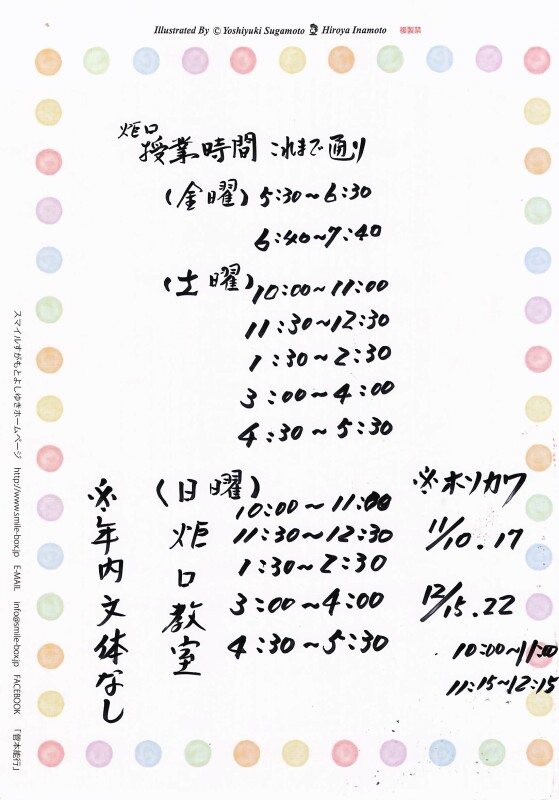 Illustrated By © Yoshiyuki Sugamoto Hiroya Inamoto 複製禁
炬口
授業時間 これまで通り
(金曜) 5:30~6:30
6:40~7:40
(土曜) 10:00~11:00
11:30~12:30
1:30~2:30
3:00~4:00
4:30~5:30
(日曜)
炬口教室
10:00~11:00
11:30~12:30
1:30~2:30
3:00~4:00
4:30~5:30
※年内文体なし
※ホソカワ
11/10.17
12/15.22
10:00~11:00
11:15~12:15
スマイルすがもとよしゆきホームページ http://www.smile-box.jp E-MAIL info@smile-box.jp FACEBOOK 「菅本能行」